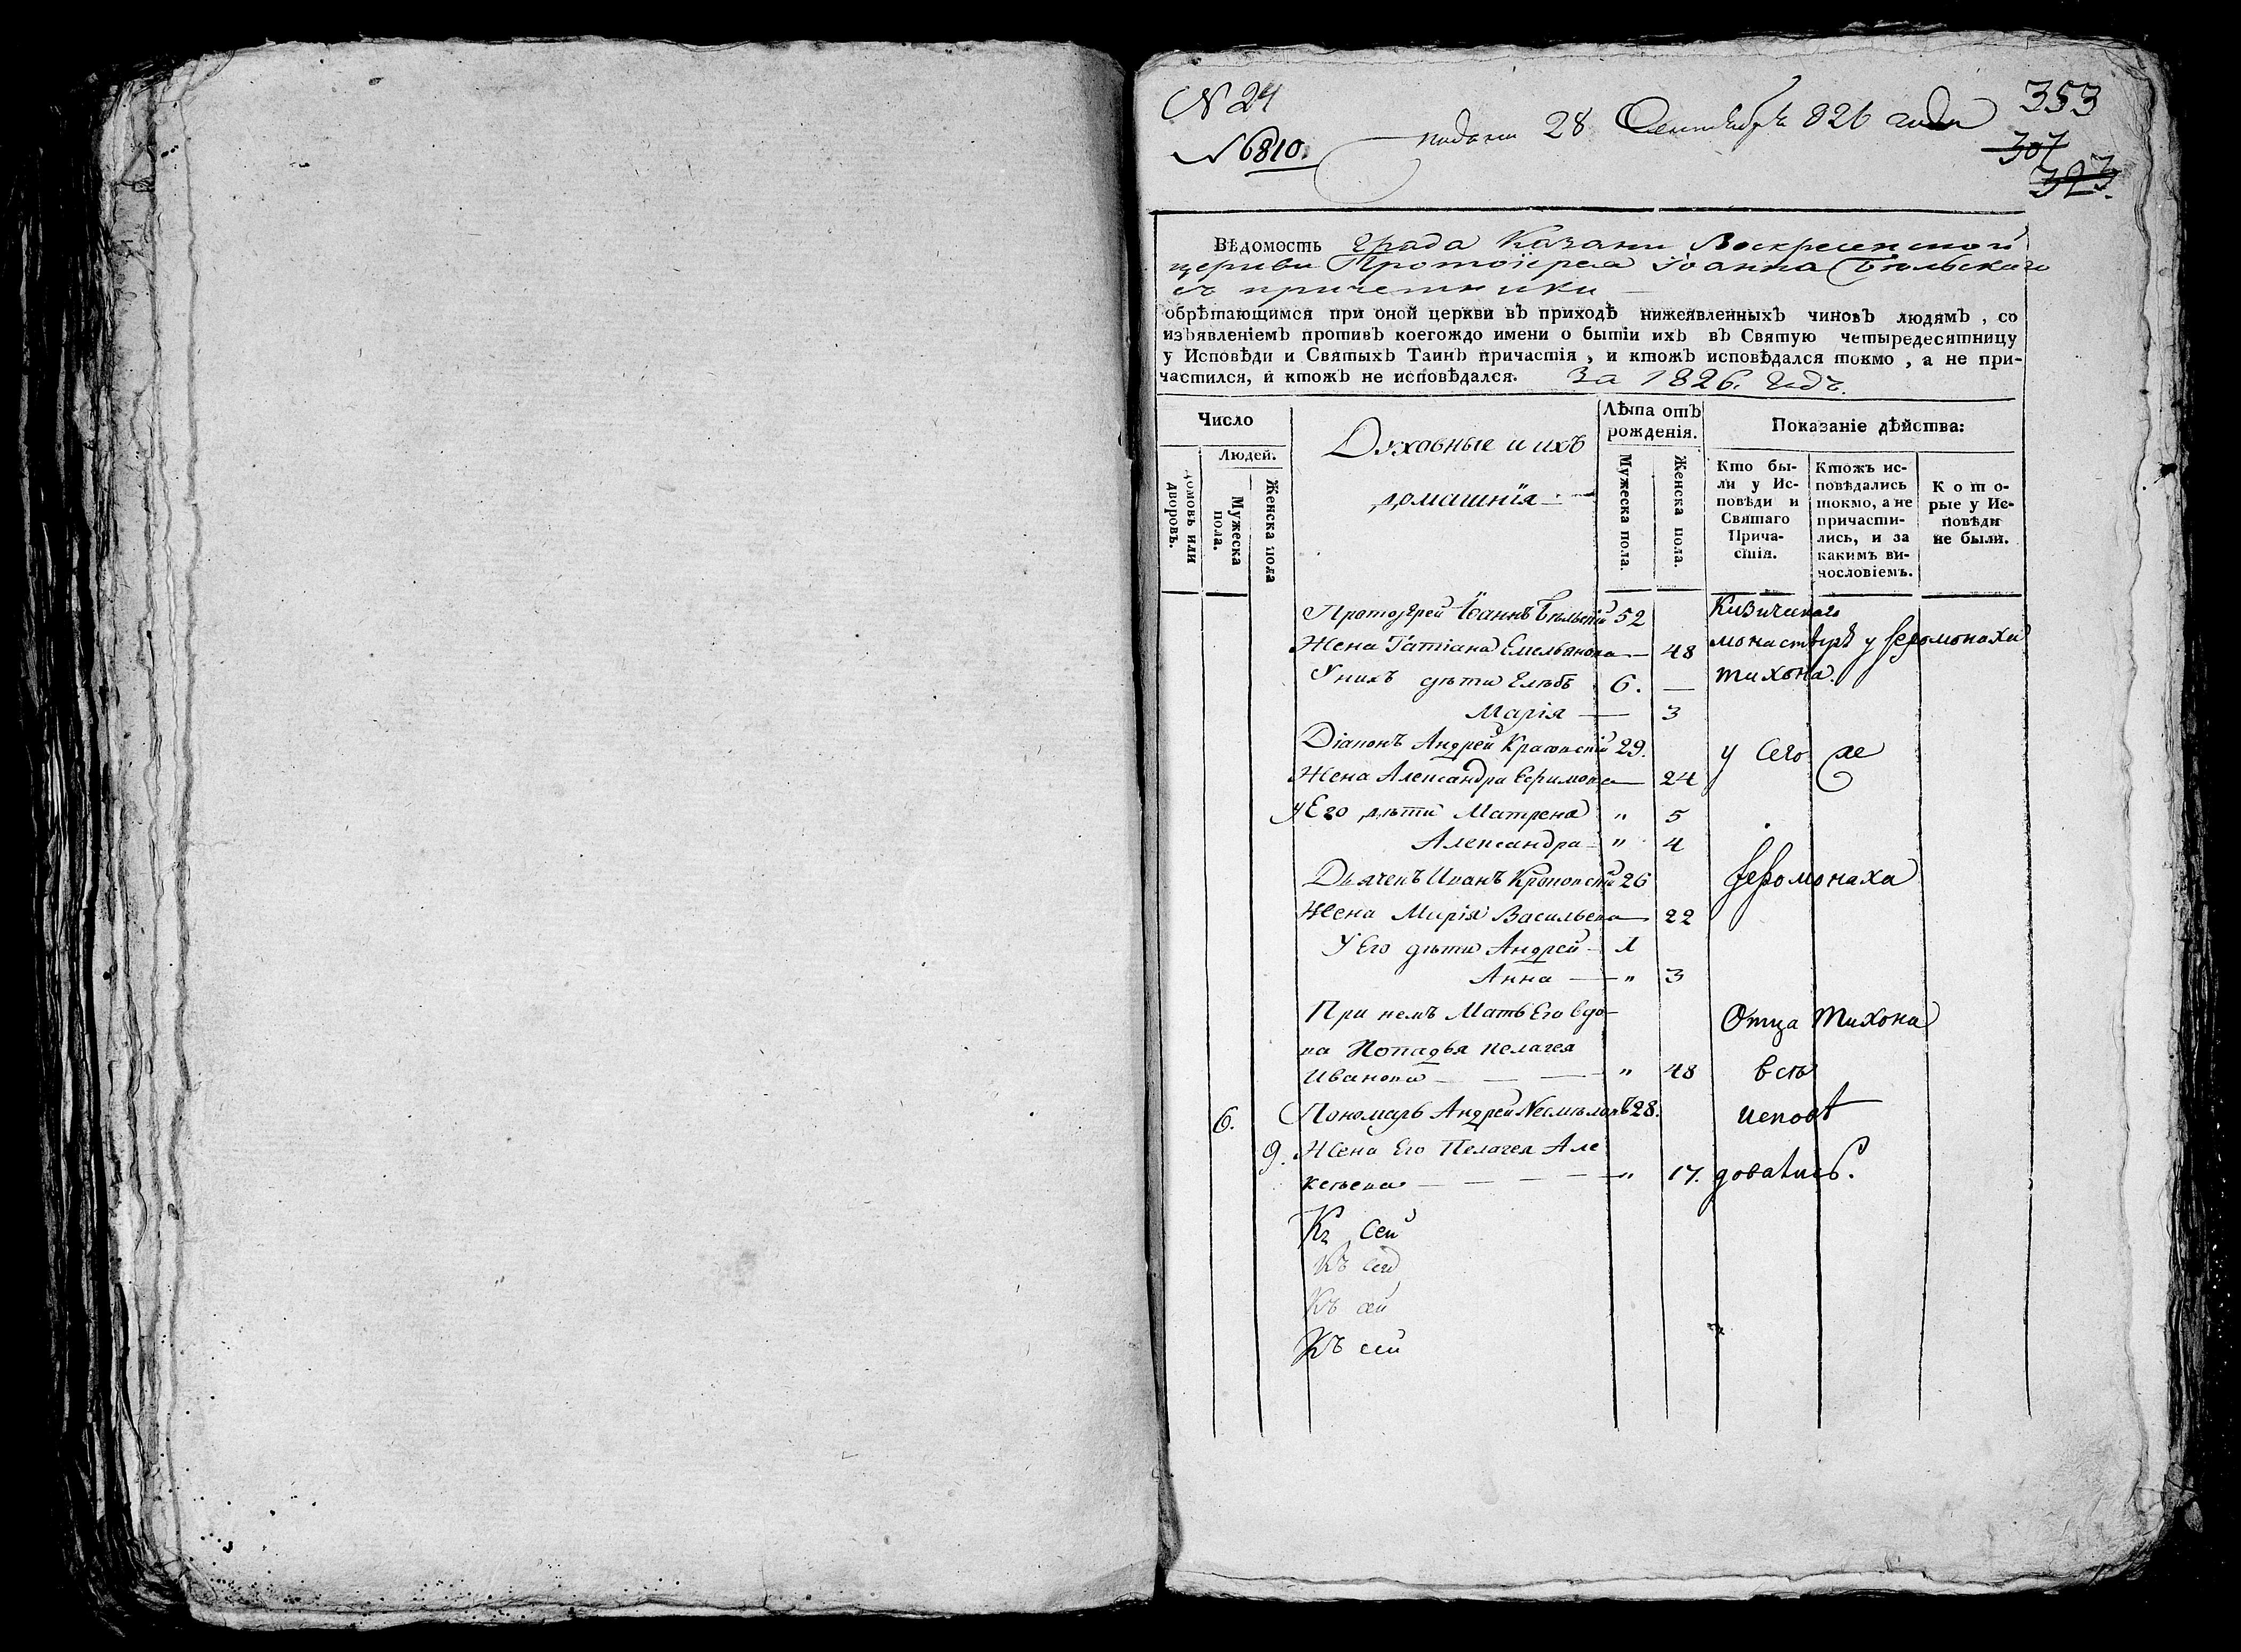 N 24
подана 28 Сентября 826 года
353
307
323.
N 6810.
Вѣдомость Града Казани Воскресенской
церкви Протоіерея Іоанна Бѣльскаго
съ причетники
обрѣтающимся при оной церкви въ приходѣ нижеявленныхъ чиновъ людямъ, со
изъявленіемъ противъ коегождо имени о бытіи ихъ въ Святую четыредесятницу
у Исповѣди и Святыхъ Таинъ причастія, и ктожъ исповѣдался токмо, а не при-
частился, и ктожъ не исповѣдался. За 1826. Годъ.
Число
Людей.
домовъ или дворовъ.
Мужеска пола.
Женска пола
Духовные и ихъ
домашнія
Лѣта отъ
рожденія.
Мужеска пола.
Женска пола.
Показаніе дѣйства:
Кто бы-
ли у Ис-
повѣди и
Святаго
Прича-
стія.
Ктожъ ис-
повѣдались
токмо, а не
причасти-
лись, и за
какимъ ви-
нословіемъ.
Кото-
рые у Ис-
повѣди
не были.
Протоіерей Іоаннъ Бѣльскій 52 Кизическаго
Жена Татіана Емельянова — 48 монастырѣ у Іеромонаха
У нихъ дѣти Глѣбъ 6. — Тихона.
Марія — 3
Діаконъ Андрей 29. у Сего же
Жена Александра Ефимова — 24
У Его дѣти Матрена " 5
Александра " 4
Дьячекъ Иванъ 26 Іеромонаха
Жена Марія Васильева — 22
У Его дѣти Андрей 1
Анна — " 3
При немъ Мать Его вдо- Отца Тихона
ва Попадья Пелагея
Иванова — " 48 всѣ
6. Пономарь Андрей Несмѣловъ 28. исповѣ
9. Жена Его Пелагея Але
ксѣева — " 17. довались.
Къ сей
Къ сей
Къ сей
Къ сей